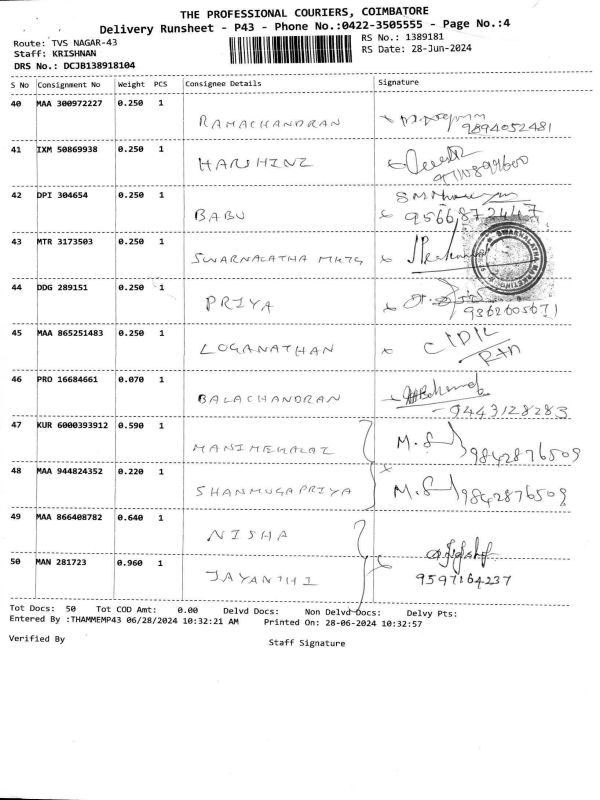 THE PROFESSIONAL COURIERS, COIMBATORE
Delivery Runsheet - P43 - Phone No.:0422-3505555 - Page No.:4
Route: TVS NAGAR-43
RS No.: 1389181
Staff: KRISHNAN
RS Date: 28-Jun-2024
DRS No.: DCJB138918104
S No Consignment No Weight PCS Consignee Details Signature
40 MAA 300972227 0.250 1
RAMACHANDRAN
9894052481
41 IXM 50869938 0.250 1
HARSHINI
42 DPI 304654 0.250 1
BABU
9566872447
43 MTR 3173503 0.250 1
SWARNALATHA MKTG
44 DDG 289151 0.250 1
PRIYA
9362605671
45 MAA 865251483 0.250 1
LOGANATHAN
46 PRO 16684661 0.070 1
BALACHANDRAN
9443128283
47 KUR 6000393912 0.590 1
MANIMEGALAI
M. S
9842876509
48 MAA 944824352 0.220 1
SHANMUGAPRIYA
M. S
9842876509
49 MAA 866408782 0.640 1
NISHA
50 MAN 281723 0.960 1
JAYANTHI
9597164237
Tot Docs: 50 Tot COD Amt: 0.00 Delvd Docs: Non Delvd Docs: Delvy Pts:
Entered By :THAMMEMP43 06/28/2024 10:32:21 AM Printed On: 28-06-2024 10:32:57
Verified By
Staff Signature